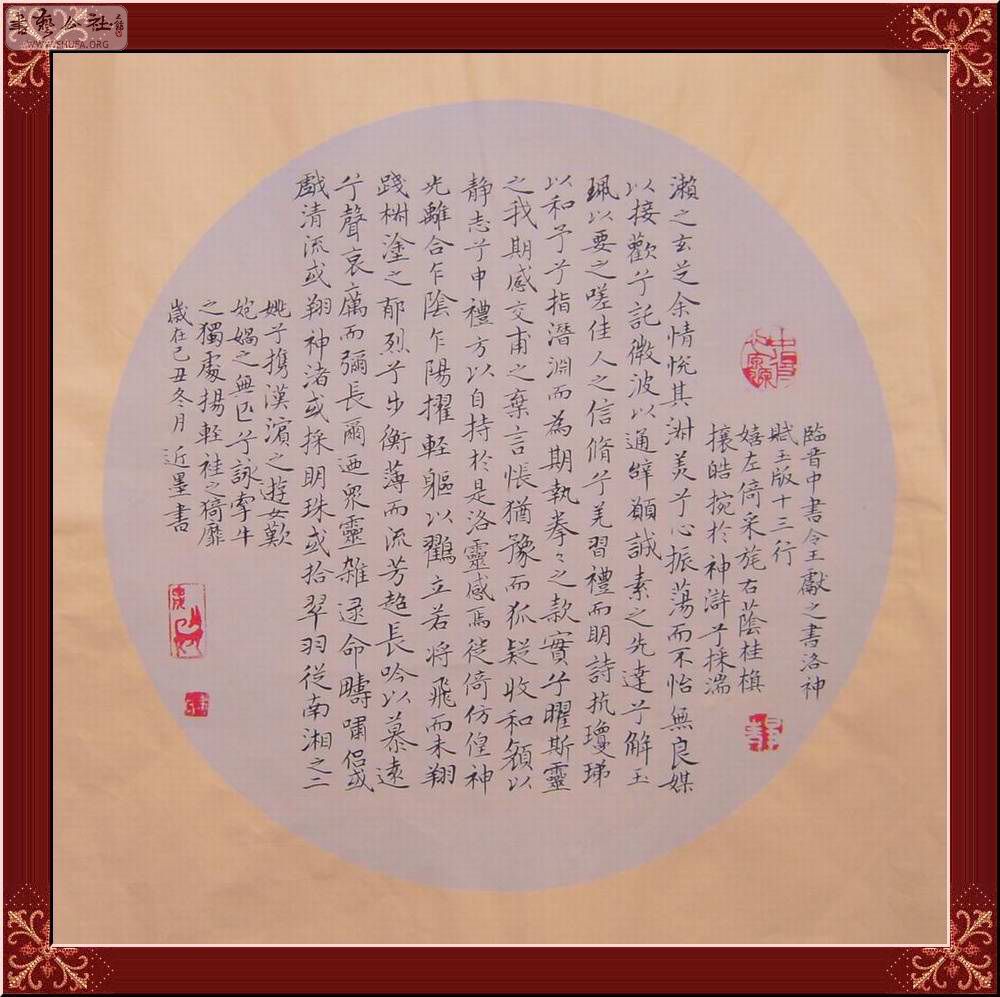 書藝公社
WWW.SHUFA.ORG
臨晉中書令王獻之書洛神
賦玉版十三行
嬉左倚采旄右蔭桂旗
攘皓捥於神滸兮採湍
瀨之玄芝余情悅其淑美兮心振蕩而不怡無良媒
以接歡兮託微波以通辭願誠素之先達兮解玉
珮以要之嗟佳人之信脩兮羌習禮而明詩抗瓊珶
以和予兮指潛淵而為期執拳々之款實兮曜斯靈
之我期感交甫之棄言悵猶豫而狐疑收和顏以
靜志兮申禮方以自持於是洛靈感焉徙倚仿偟神
光離合乍陰乍陽擢輕軀以鸖立若將飛而未翔
踐椒塗之郁烈兮步衡薄而流芳超長吟以慕遠
兮聲哀厲而彌長爾迺衆靈雜遝命疇嘯侶或
戲清流或翔神渚或採明珠或拾翠羽從南湘之二
姚兮攜漢濱之遊女歎
匏媧之無匹兮詠牽牛
之獨處揚輕袿之猗靡
歲在己丑冬月近墨書